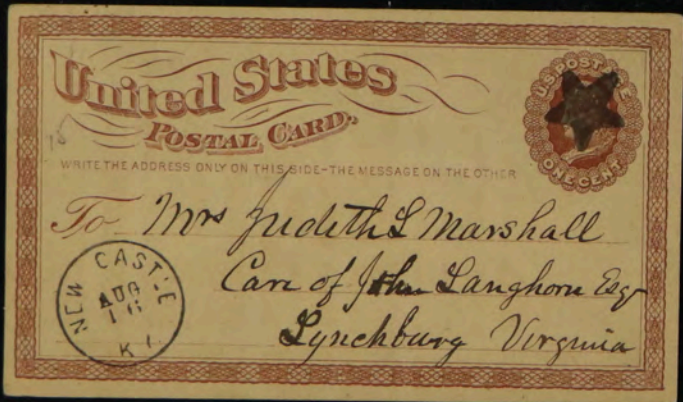 United States
POSTAL CARD.
U.S. POSTAGE
ONE CENT
WRITE THE ADDRESS ONLY ON THIS SIDE-THE MESSAGE ON THE OTHER
To Mrs Judith L Marshall
Care of John Langhorn Esqr
Lynchburg Virginia
NEW CASTLE
AUG
KY.